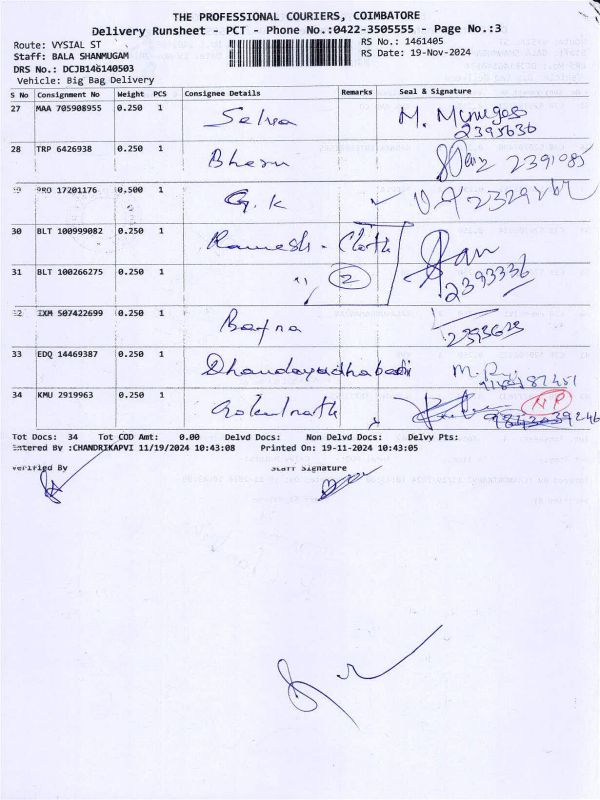 THE PROFESSIONAL COURIERS, COIMBATORE
Delivery Runsheet - PCT - Phone No.:0422-3505555 - Page No.:3
Route: VYSIAL ST RS No.: 1461405
Staff: BALA SHANMUGAM RS Date: 19-Nov-2024
DRS No.: DCJB146140503
Vehicle: Big Bag Delivery
S No Consignment No Weight PCS Consignee Details Remarks Seal & Signature
27 MAA 705908955 0.250 1 Selva M. Murugas
2395636
28 TRP 6426938 0.250 1 2391085
PRO 17201176 0.500 1 G.K
30 BLT 100999082 0.250 1 Ramesh - Cloth
31 BLT 100266275 0.250 1 " 2 2393336
IXM 507422699 0.250 1 Bafna 2393623
33 EDQ 14469387 0.250 1 M.
34 KMU 2919963 0.250 1 Gokulnath NP
Tot Docs: 34 Tot COD Amt: 0.00 Delvd Docs: Non Delvd Docs: Delvy Pts:
Entered By :CHANDRIKAPVI 11/19/2024 10:43:08 Printed On: 19-11-2024 10:43:05
Verified By Staff Signature